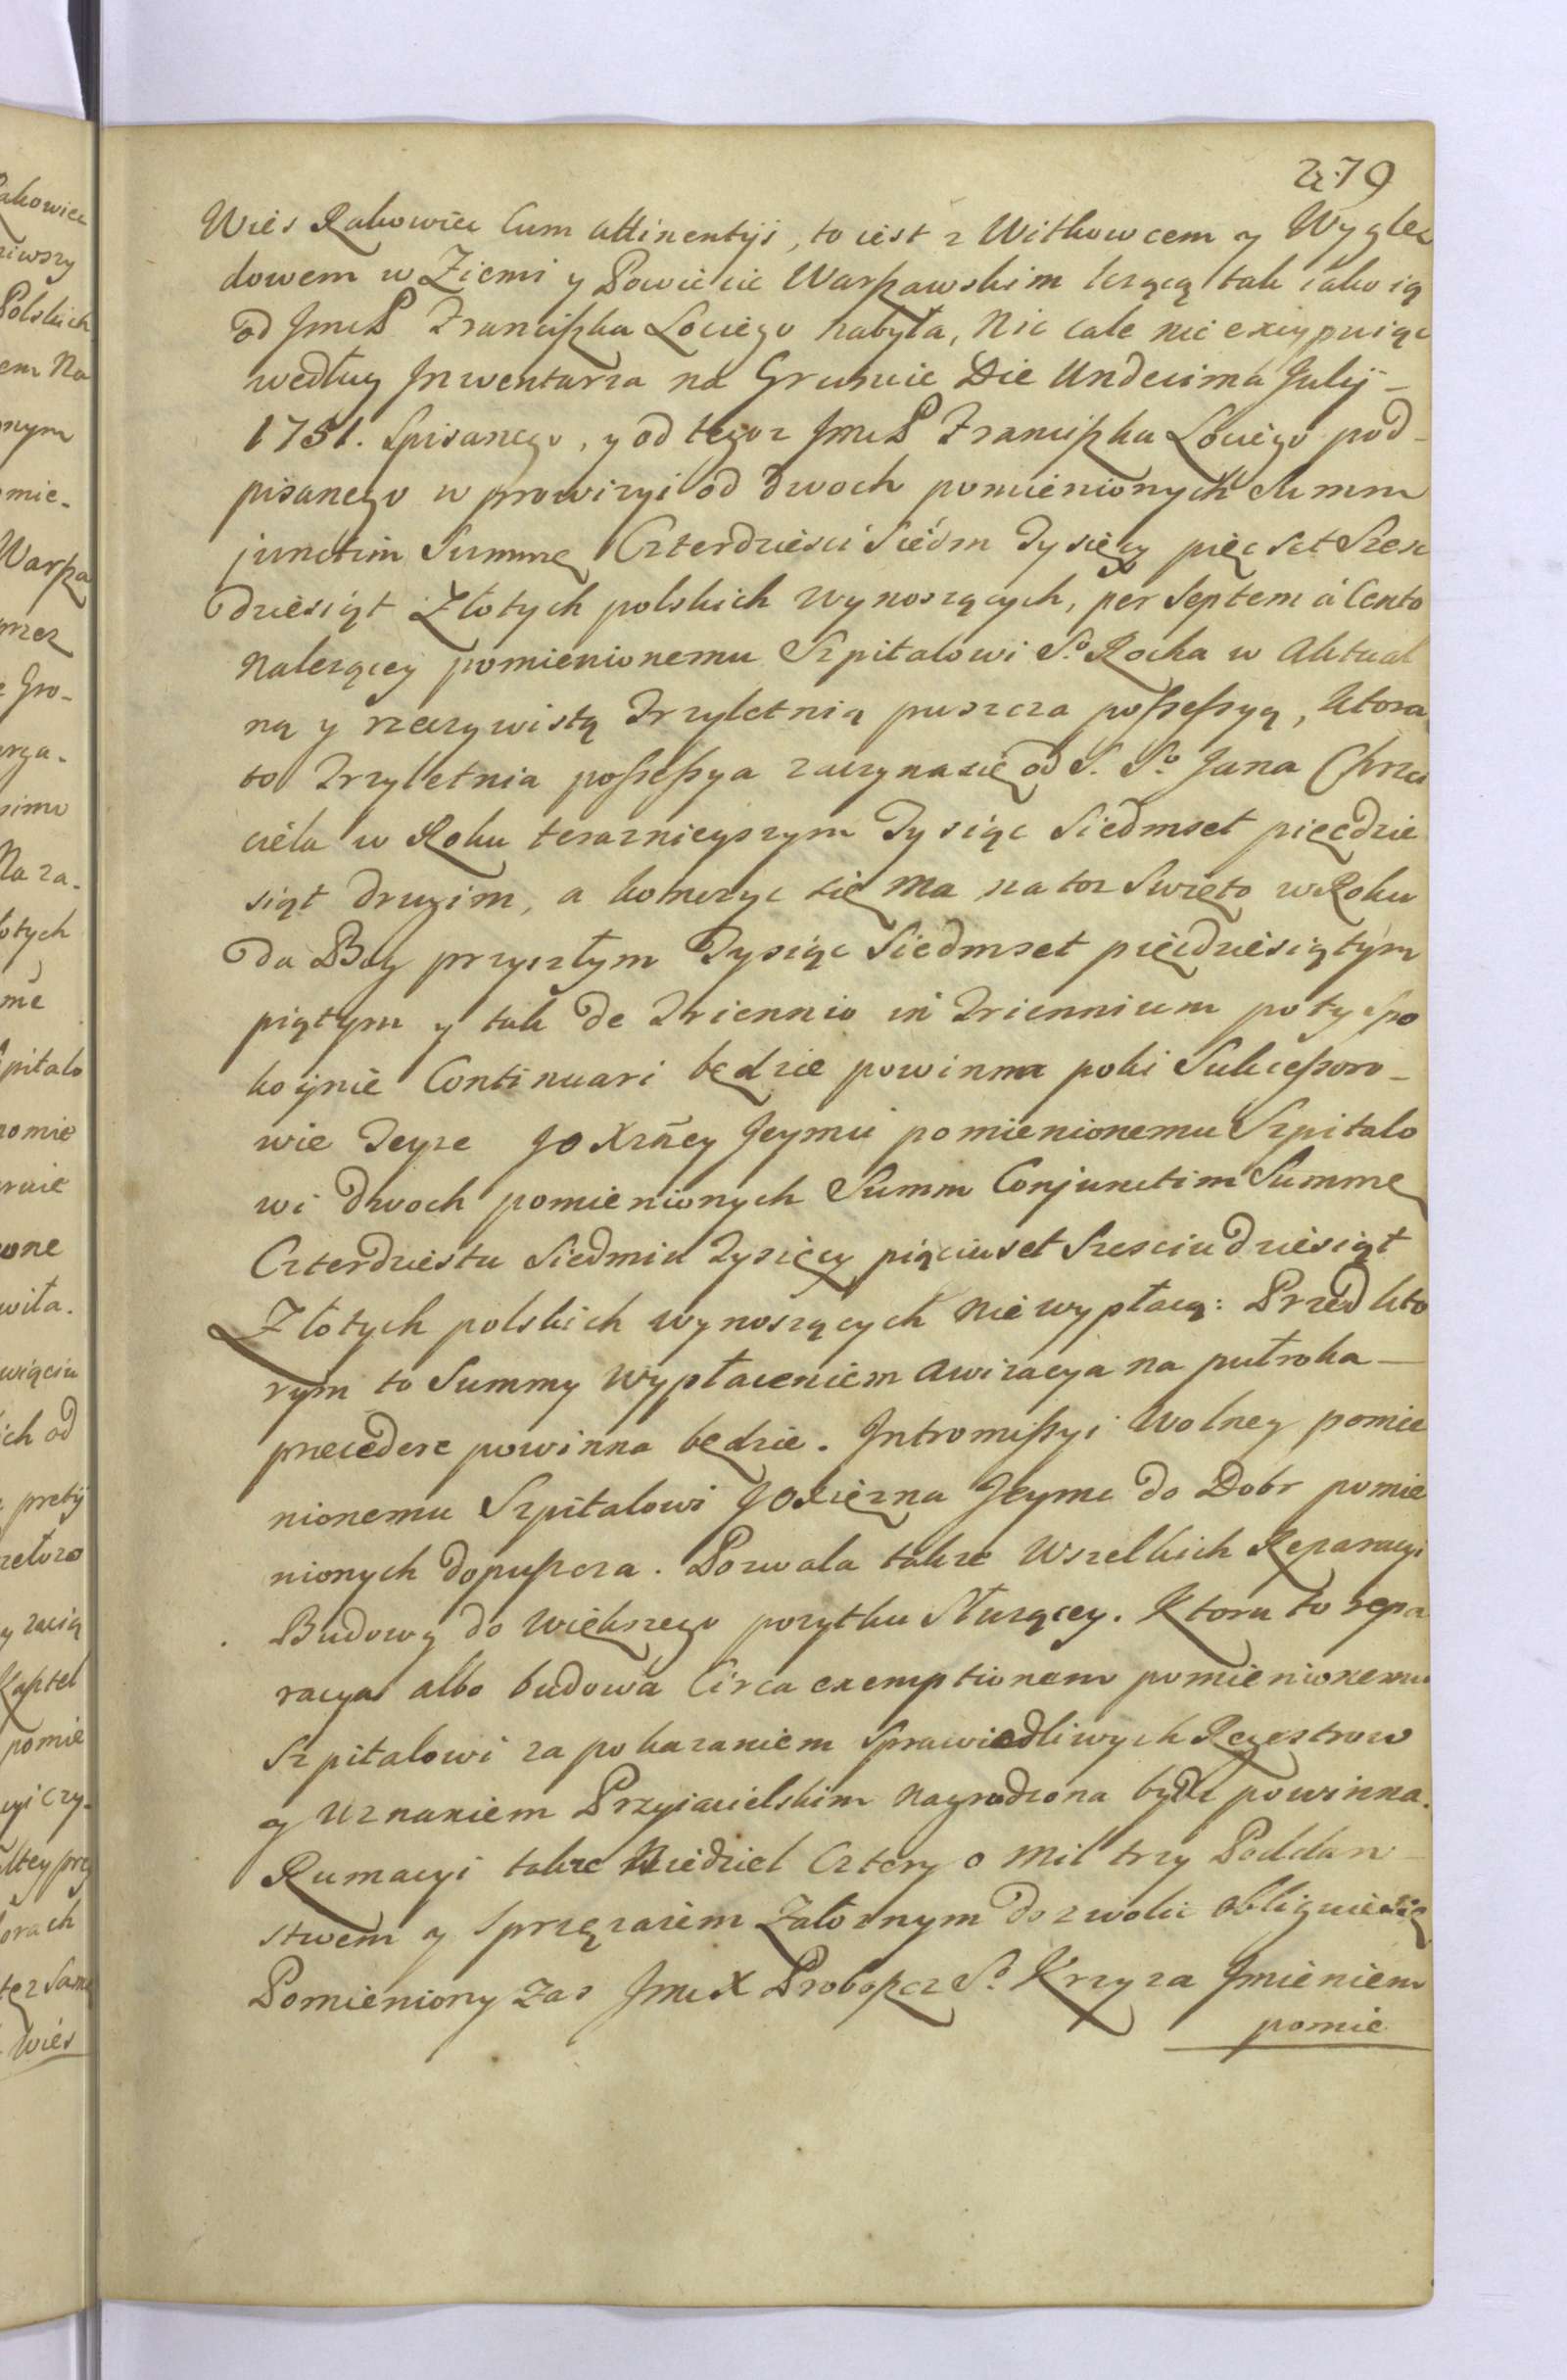 279
Wies Rakowiec Cum attinentijs, to iest z Witkowcem y Wyglę
dowem w Ziemi y Powiecie Warszawskim leżącą tak iako ią
od JmcP Franciszka Lociego nabyła, nic cale nie excypuiąc
według Jnwentarza na Gruncie Die Undecima Julij –
1751. Spisanego, y od tegoz JmcP Franciszka Lociego pod-
pisanego w prowizyi od dwoch pomienionych Summ
junctim Summę Czterdziesci Siedm Tysięcy pięc set Szesc
dziesiąt Złotych polskich wynoszących, per Septem à Cento
Należącey pomienionemu Szpitalowi So Rocha w Aktual
ną y rzeczywistą Trzyletnią puszcza possessyą, Ktora
to Trzyletnia possessya zaczyna się od S. So Jana Chrzci
ciela w Roku teraznieyszym Tysiąc Siedmset pięcdzie
siąt drugim, a konczyc się ma na toz Swięto w Roku
da Bog przyszłym Tysiąc Siedmset pięcdziesiątym
piątym y tak de Triennio in Triennium poty spo
koynie Continuari będzie powinna poki Sukcessoro-
wie Teyze JO Xzney Jeymci pomienionemu Szpitalo
wi dwoch pomienionych Summ Conjunctim Summę
Czterdziestu Siedmiu Tysięcy pięciuset Szesciudziesiąt
Złotych polskich wynoszących nie wypłacą: Przed kto
rym to Summy wypłaceniem Awizacya na pułroka –
præcedere powinna będzie. Jntromissyi Wolney pomie
nionemu Szpitalowi JO Xięzna Jeymc do Dobr pomie
nionych dopuszcza. Pozwala takze Wszelkich Reparacyi
Budowy do większego pozytku Służącey. Ktora to repa
racya albo budowa Circa exemptionem pomienionemu
Szpitalowi za pokazaniem Sprawiedliwych Regestrow
y Uznaniem Przyiacielskim nagrodzona bydz powinna.
Rumacyi takze Niedziel Cztery o mil trzy Poddan –
stwem y Sprzęzaiem Załoznym dozwolic obliguie się
Pomieniony zas JmcX Proboszcz So Krzyza Jmieniem
pomie